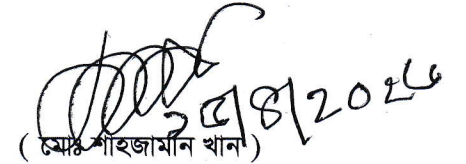 ২৫/৪/২০২৪
( মোঃ শাহজামান খান )